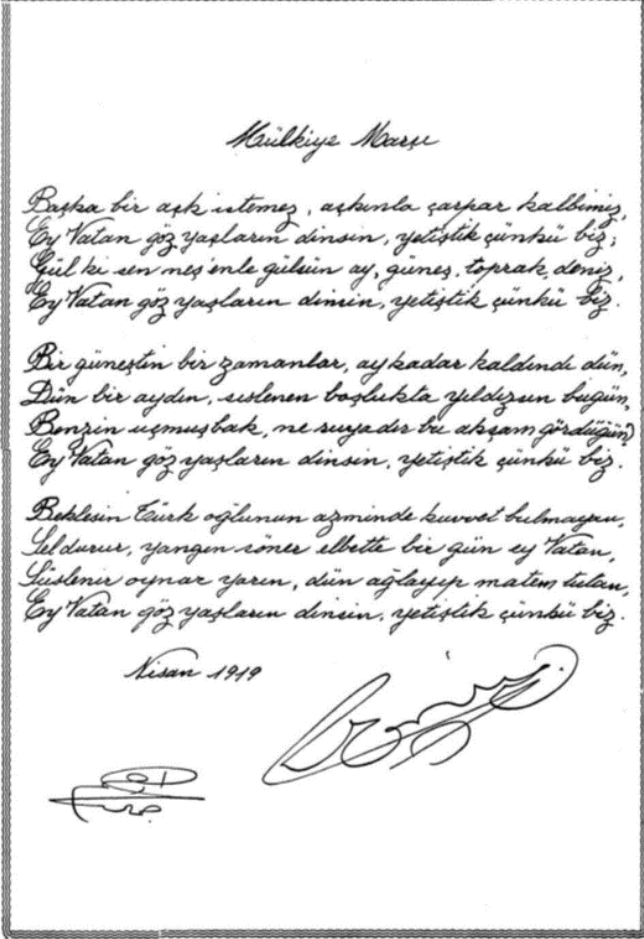 Mülkiye Marşı
Başka bir aşk istemez, aşkınla çarpar kalbimiz,
Ey Vatan göz yaşların dinsin, yetiştik çünkü biz;
Gül ki sen neş'enle gülsün ay, güneş, toprak, deniz,
Ey Vatan göz yaşların dinsin, yetiştik çünkü biz.
Bir güneştin bir zamanlar, ay kadar kaldındı dün,
Dün bir aydın, sislenen boşlukta yıldızsın bugün,
Benzin uçmuş bak, ne rüyadır bu akşam gördüğün?
Ey Vatan göz yaşların dinsin, yetiştik çünkü biz.
Beklesin Türk oğlunun azminde kuvvet bulmayan,
Sel durur, yangın söner elbette bir gün ey Vatan,
Süslenir oynar yarın, dün ağlayıp matem tutan,
Ey Vatan göz yaşların dinsin, yetiştik çünkü biz.
Nisan 1919